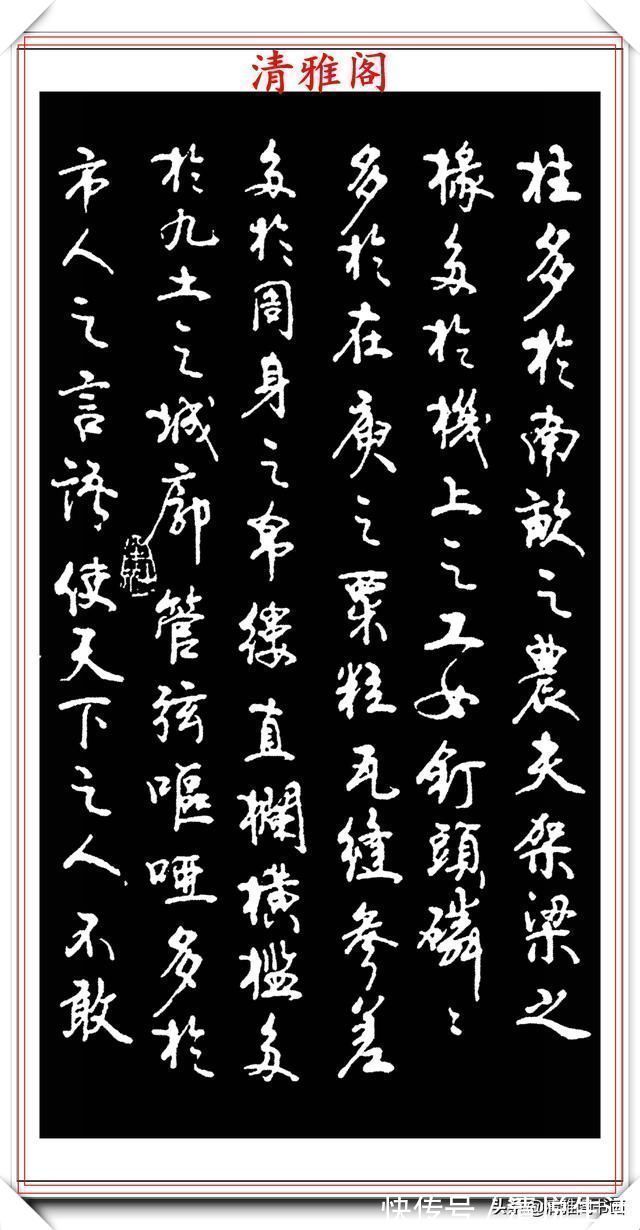 清雅阁
柱多於南畝之農夫架梁之
椽多於機上之工女釘頭磷〻
多於在庾之粟粒瓦縫參差
多於周身之帛縷直欄橫檻多
於九土之城郭管弦嘔啞多於
市人之言語使天下之人不敢
快传号